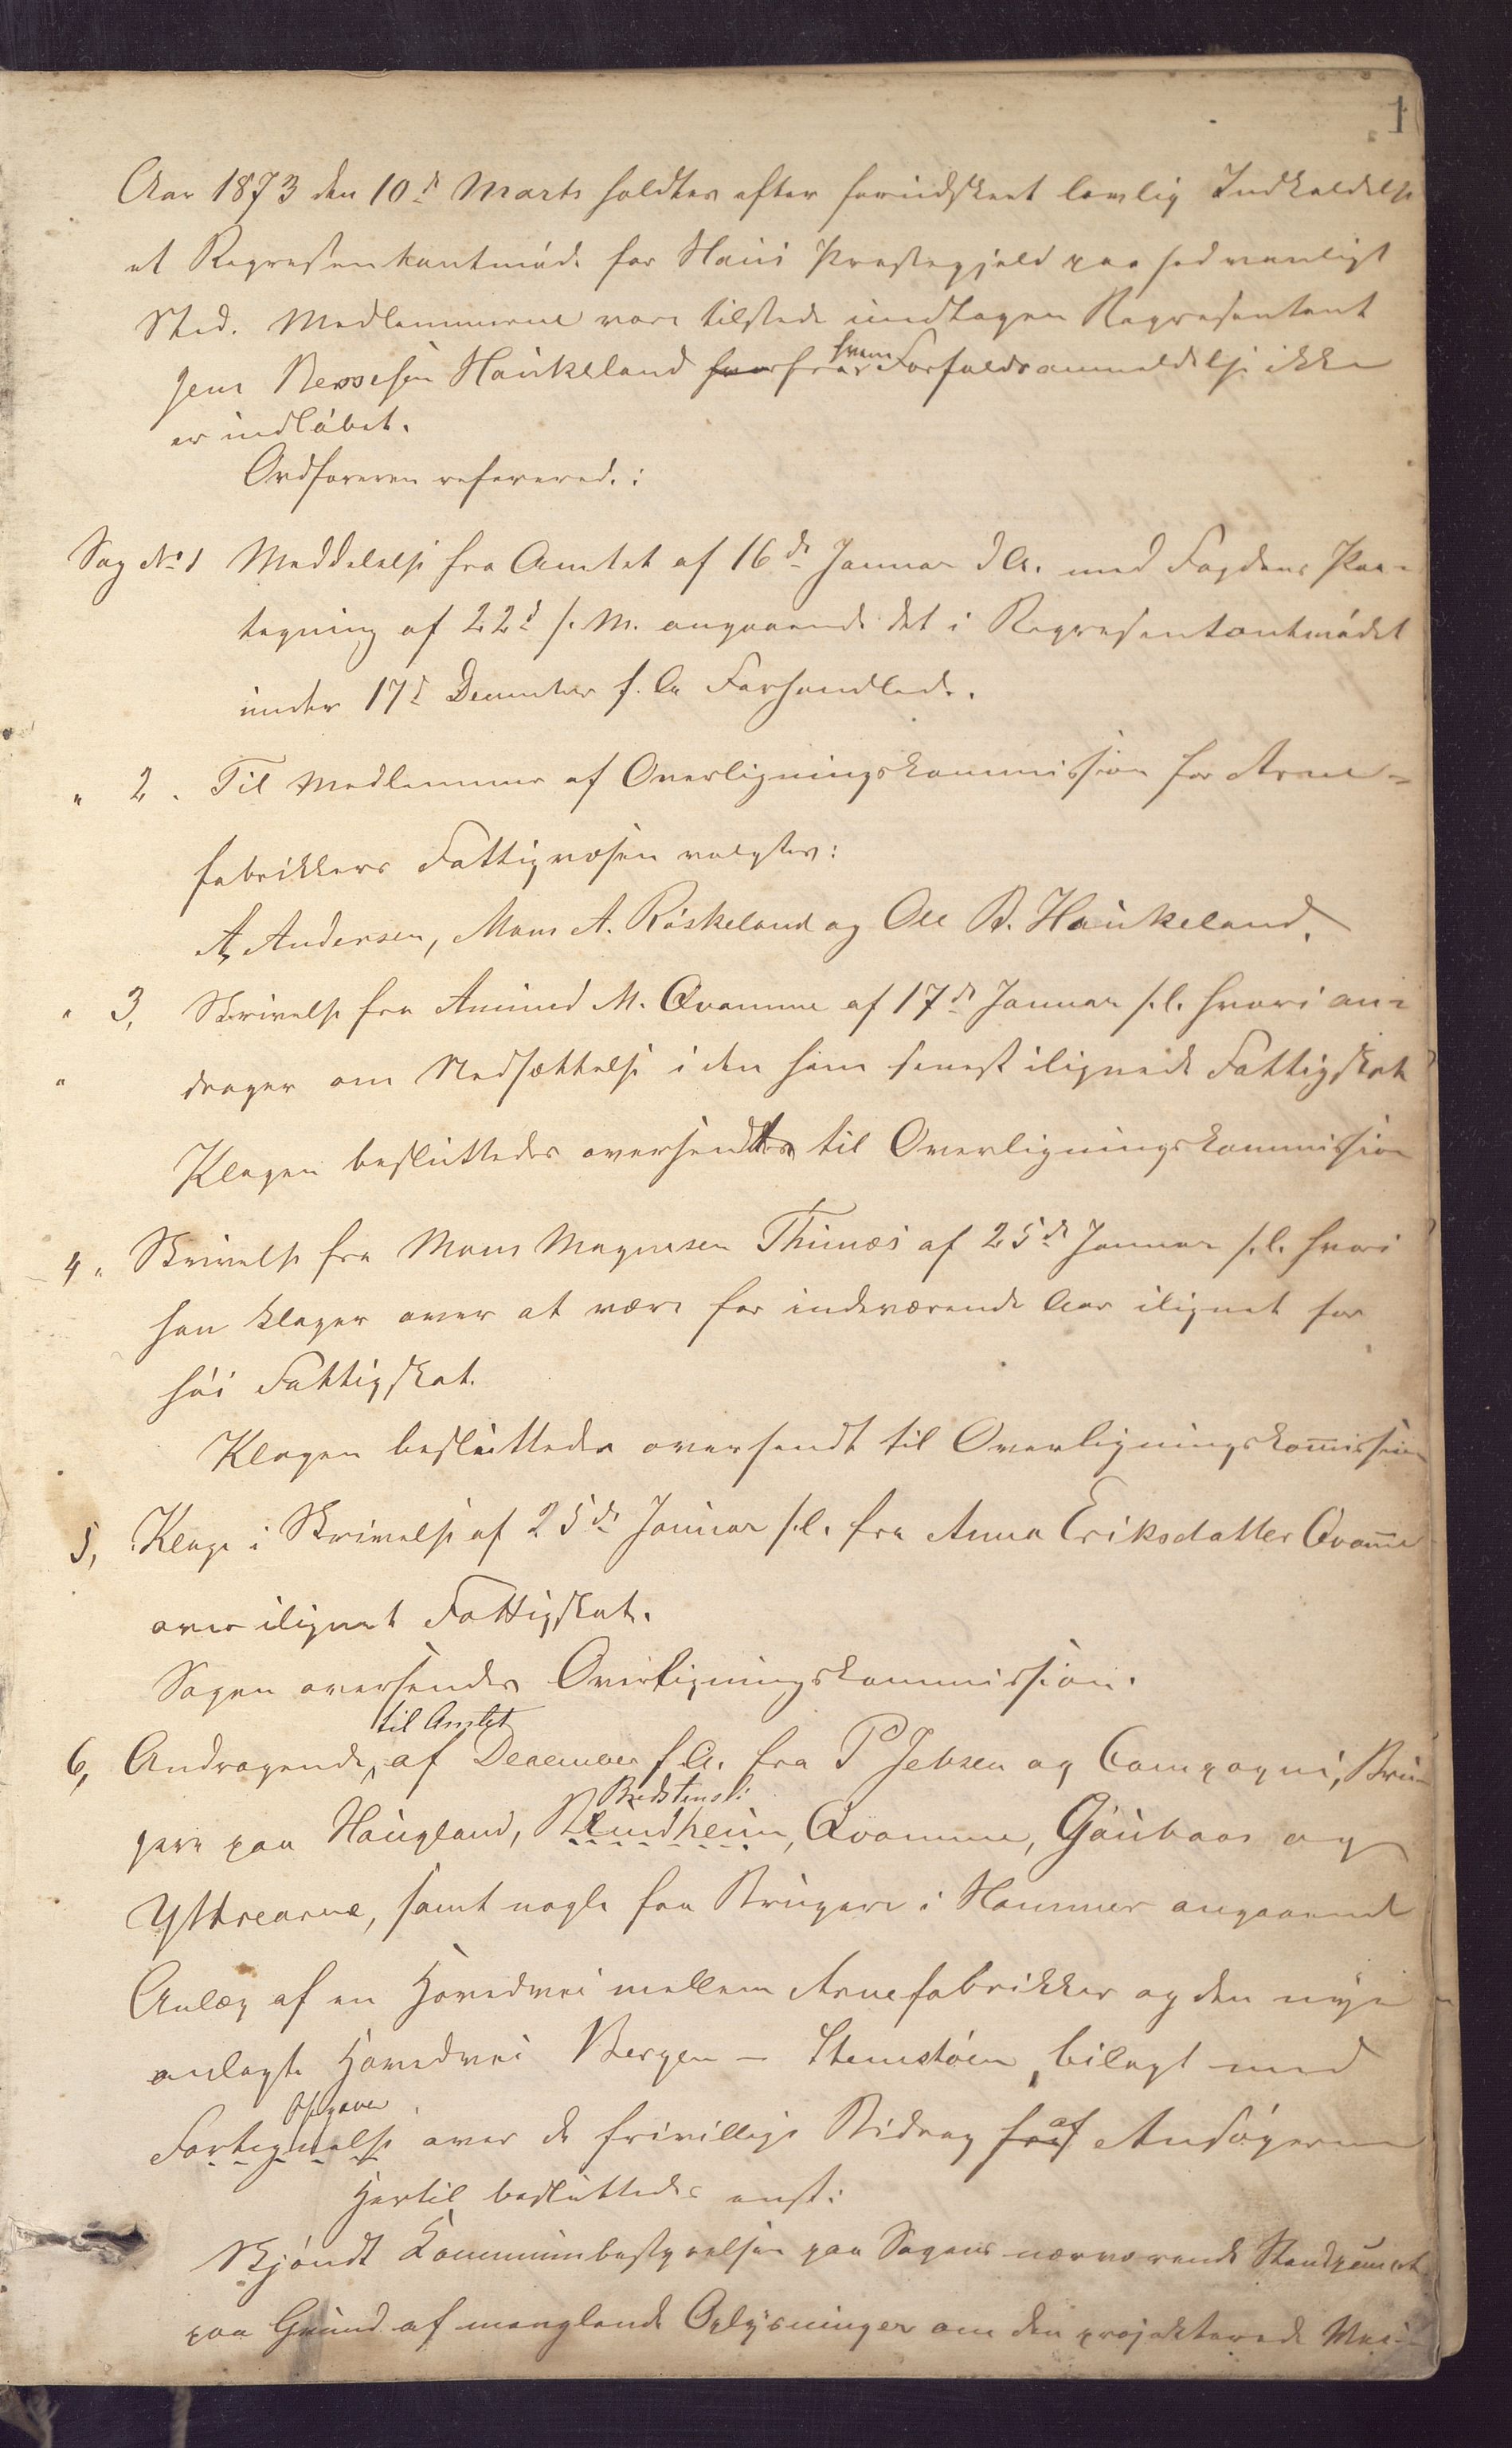 1
Aar 1873 den 10de Marts holdtes efter forudskeet lovlig Indkaldelse
et Repræsentantmøde for Haus Præstegjeld paa sedvanligt
Sted. Medlemmerne vare tilstede undtagen Repræsentant
Jens Nesse Haukeland hvem Forfaldsanmeldelse ikke
er indløbet.
Ordføreren refererede:
Sag No 1 Meddelelse fra Amtet af 16de Januar d. A. med Fogdens Paa-
tegning af 22d s. M. angaaende det i Repræsentantmødet
under 17d December f. A. Forhandlede.
" 2. Til Medlemmer af Overligningskommission for Arne-
fabrikkers Fattigvæsen valgtes:
A. Andersen, Mons A. Røskeland og Ole B. Haukeland.
" 3, Skrivelse fra Amund M. Qvamme af 17de Januar s. l. hvori an-
" drager om Nedsættelse i den ham senest ilignede Fattigskat
Klagen besluttedes oversendt til Overligningskommission
4 " Skrivelse fra Mons Magnesen Thunæs af 25de Januar s. l. hvori
han klager over at være for indeværende Aar ilignet for
høi Fattigskat.
Klagen besluttedes oversendt til Overligningskommission
5, Klage i Skrivelse af 25de Januar s. l. fra Anna Eriksdatter Qvamme
over ilignet Fattigskat.
Sagen oversendes Overligningskommission.
til Amtet
6, Andragende af December f. A. fra P Jebsen og Compagni, Bru-
Bredstensli
gere paa Haugland, Rundheim, Qvamme, Gaubaas og
Yttrearne, samt nogle fra Brugere i Hammer angaaende
Anlæg af en Hovedvei mellem Arnefabrikker og den nye
anlagte Hovedvei Bergen – Stenestøen, bilagt med
Opgave
Fortegnelse over de frivillige Bidrag af Ansøgerne
Hertil besluttedes enst:
Skjøndt Kommunebestyrelsen paa Sagens nærværende Standpunct
paa Grund af manglende Oplysninger om den projekterede Vei-